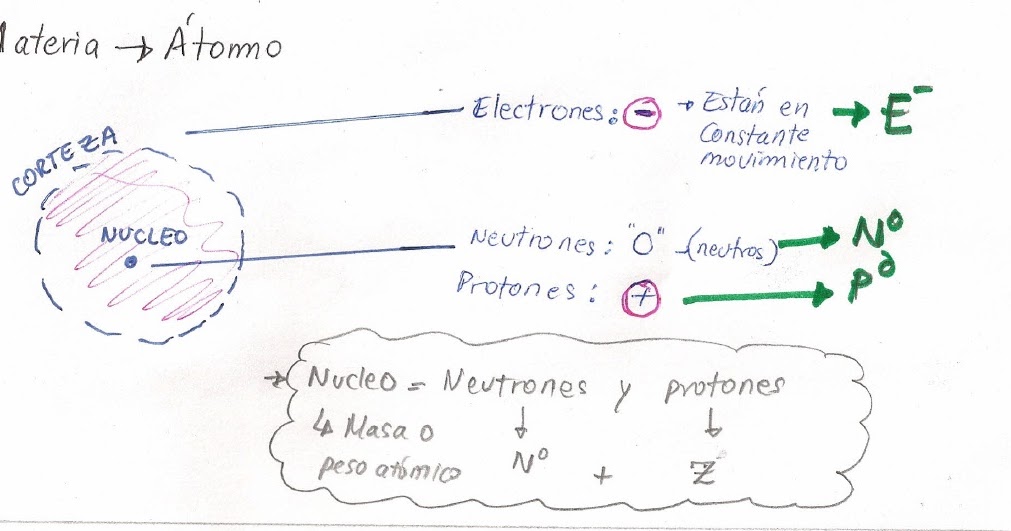 ateria → Átomo
CORTEZA
Electrones: ⊖ → Están en → E⁻
constante
movimiento
NUCLEO
Neutrones: "O" (neutros) → N⁰
Protones: ⊕ → P
→ Nucleo = Neutrones y protones
↳ Masa o ↓ ↓
peso atómico N⁰ + Z